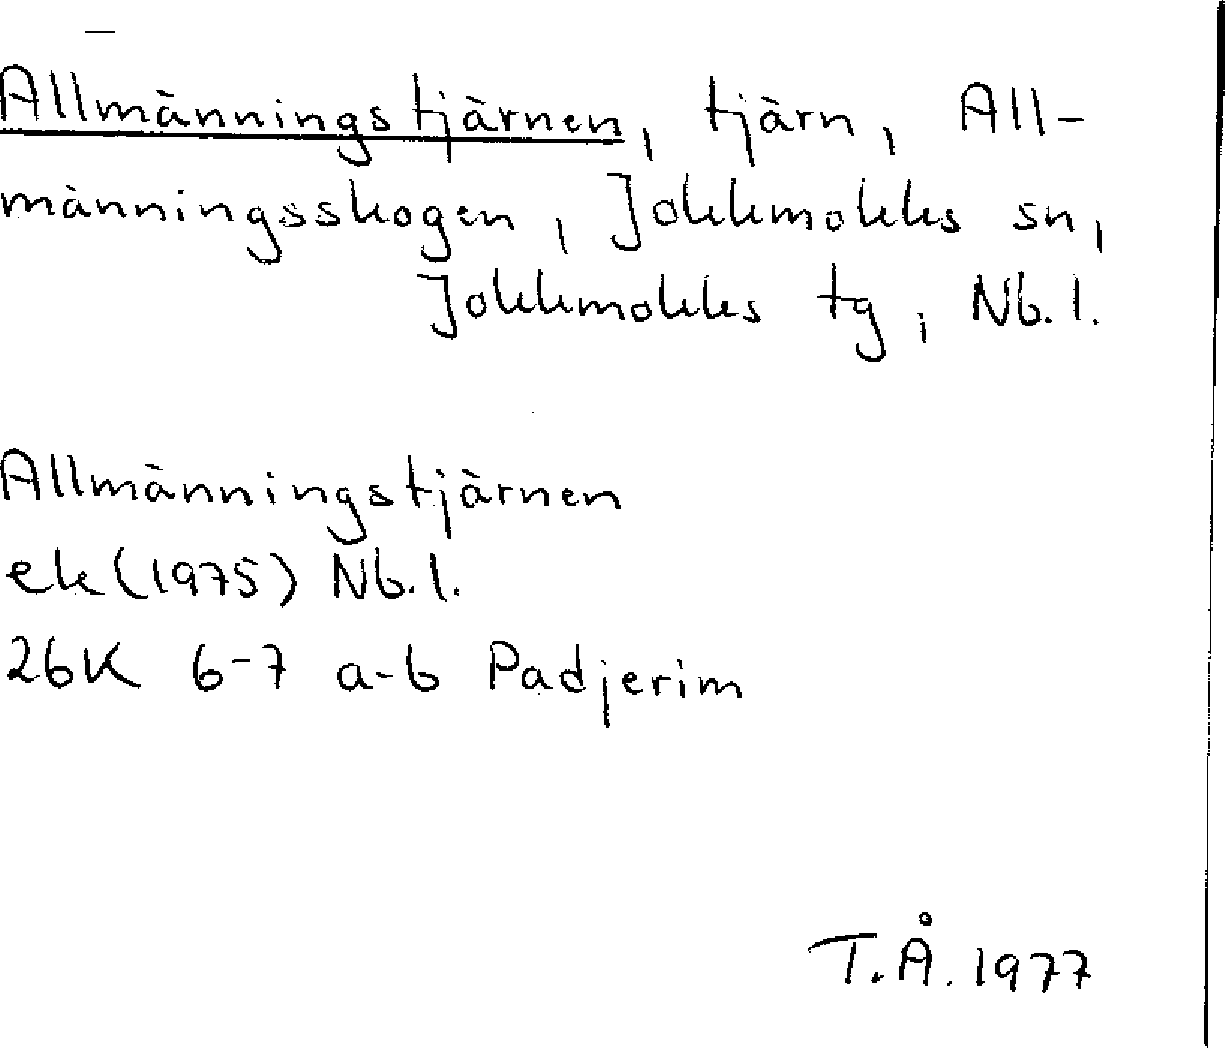 Allmänningstjärnen, tjärn, All-
männingsskogen, Jokkmokks sn,
Jokkmokks tg, Nb.l.
Allmänningstjärnen
ek (1975) Nb.l.
26K 6-7 a-b Padjerim
T.Å. 1977